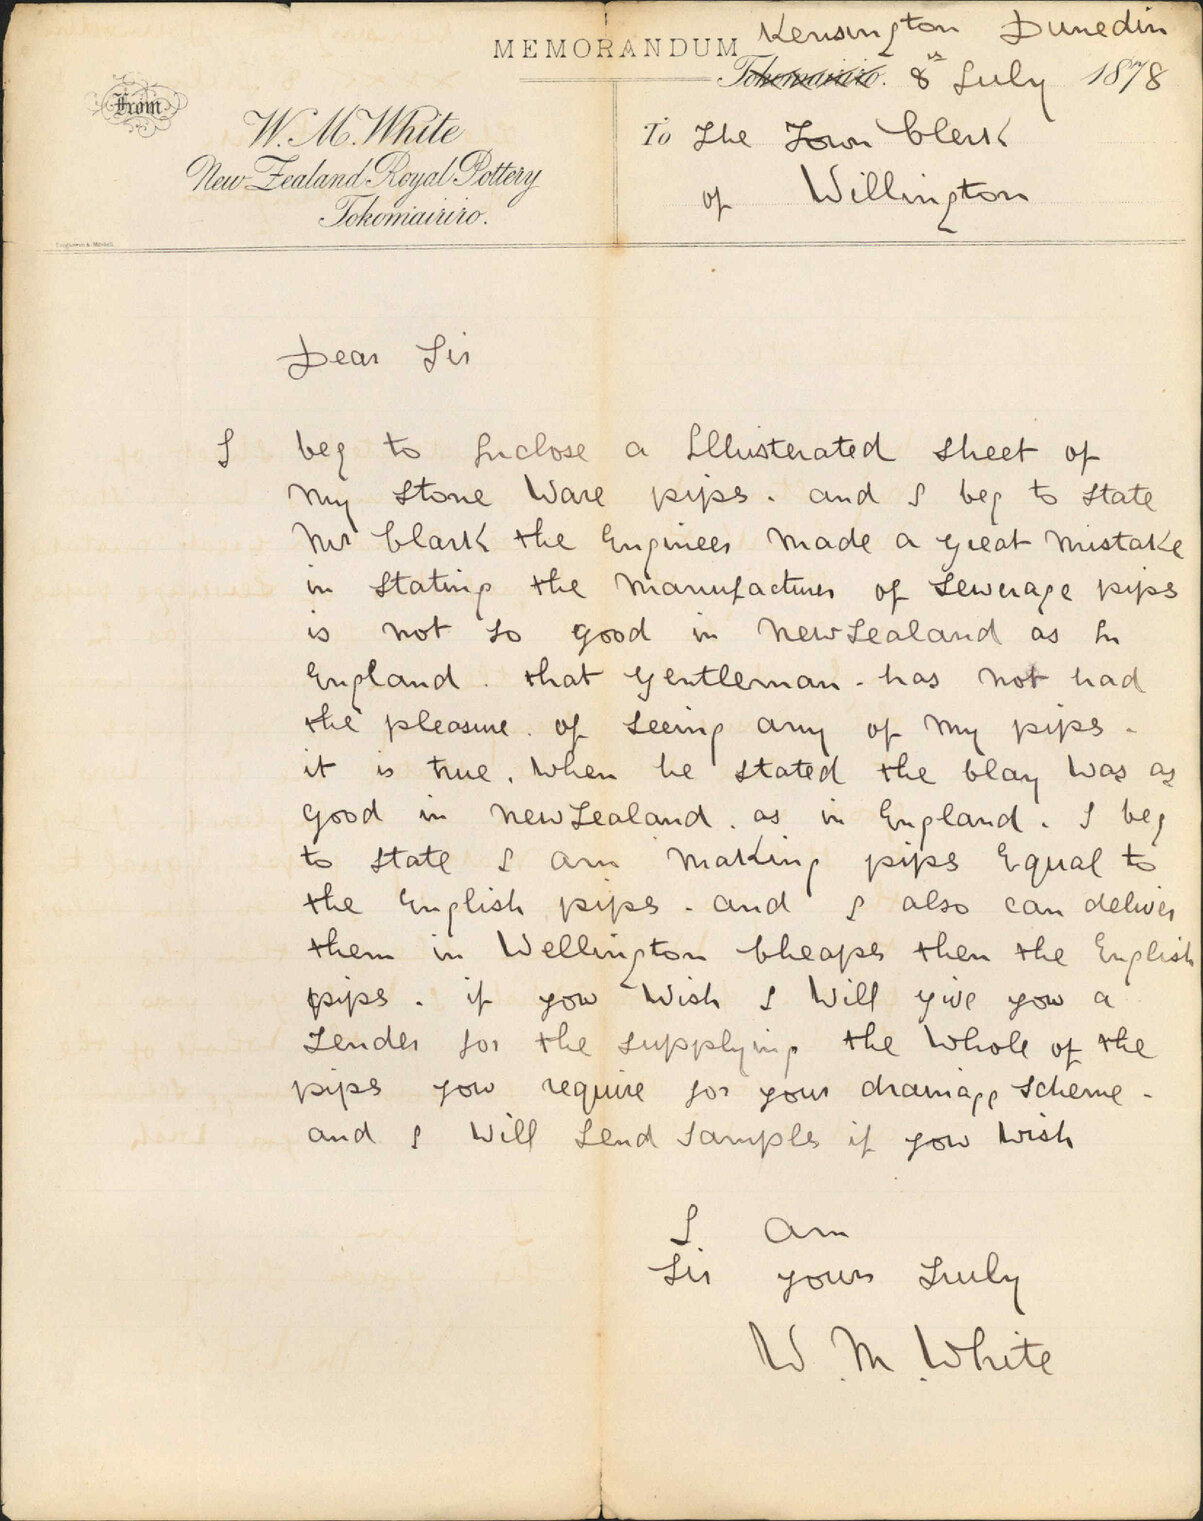 MEMORANDUM
Kensington Dunedin
Tokomairiro. 8th July 1878
From
W. M. White
New Zealand Royal Pottery
Tokomairiro.
To The Town Clerk
of Willington
Dear Sir
I beg to Inclose a Illusterated Sheet of
My Stone Ware pips. and I beg to State
Mr Clark the Engineer Made a great Mistake
in Stating the Manufacturer of Sewerage pips
is not so good in New Zealand as In
England. that gentleman. has not had
the pleasure. of Seeing any of My pips.
it is true. When he Stated the Clay Was as
good in New Zealand. as in England. I beg
to State I am Making pips Equal to
the English pips. and I also can deliver
them in Wellington Cheaper then the English
pips. if you Wish I Will give you a
Tender for the Supplying the Whole of the
pips you require for your drainage Scheme.
and I Will Send Samples if you Wish
I am
Sir yours Truly
W. M. White